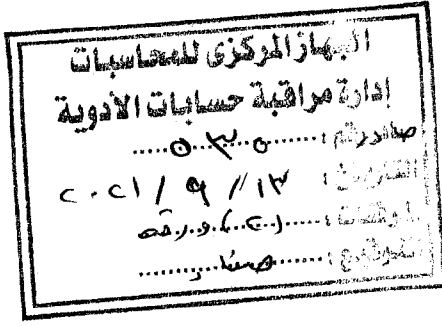 الجهاز المركزى للمحاسبات
إدارة مراقبة حسابات الأدوية
صادر رقم : ٥٣٥
التاريخ : ١٣ / ٩ / ٢٠٢١
مرفقات : (٢٠) ورقة
التوقيع :